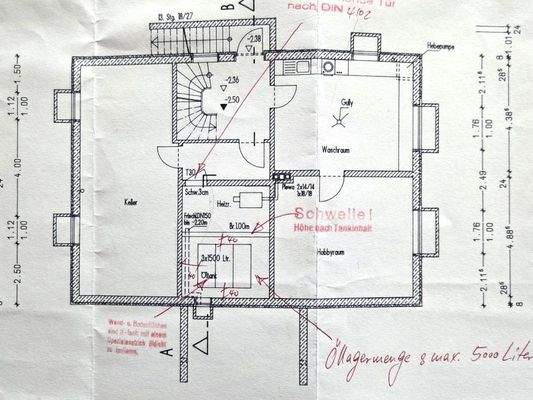 nach DIN 4102
13. Stg. 18/27
B
-2.38
-2.36
-2.50
Hebepumpe
Gully
Waschraum
T30
Schw.3cm
Plewa 2x14/14
1x18/18
Keller
Heizr.
Frischl.DN150
bis -2.20m
Br.1.00m
Schwelle!
Höhe nach Tankinhalt
Hobbyraum
40
3x1500 Ltr.
40
Öltank
40
Wand- u. Bodenflächen
sind 3-fach mit einem
A
Öllagermenge max. 5000 Liter
1.50
1.12
1.00
4.00
1.12
1.00
2.50
2.11⁵
1.76
1.00
2.49
1.76
1.00
2.11⁵
24
1.01
4.38⁵
28⁵
4.88⁵
28⁵
24
8